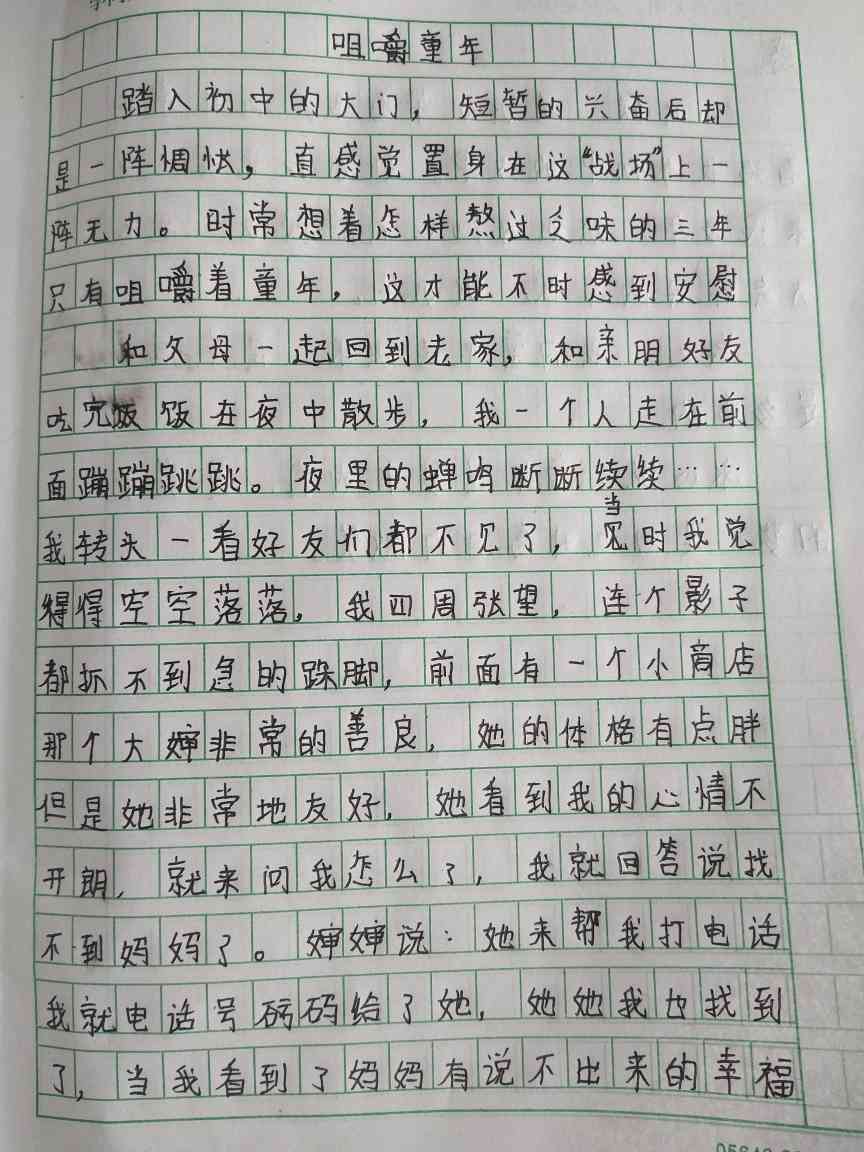 咀嚼童年
踏入初中的大门，短暂的兴奋后却
是一阵惆怅，直感觉置身在这“战场”上一
阵无力。时常想着怎样熬过乏味的三年
只有咀嚼着童年，这才能不时感到安慰
和父母一起回到老家，和亲朋好友
吃完饭饭在夜中散步，我一个人走在前
面蹦蹦跳跳。夜里的蝉鸣断断续续……
我转头一看好友们都不见了，当见时我觉
得得空空落落，我四周张望，连个影子
都抓不到急的跺脚，前面有一个小商店
那个大婶非常的善良，她的体格有点胖
但是她非常地友好，她看到我的心情不
开朗，就来问我怎么了，我就回答说找
不到妈妈了。婶婶说：她来帮我打电话
我就电话号码给了她，她她我也找到
了，当我看到了妈妈有说不出来的幸福